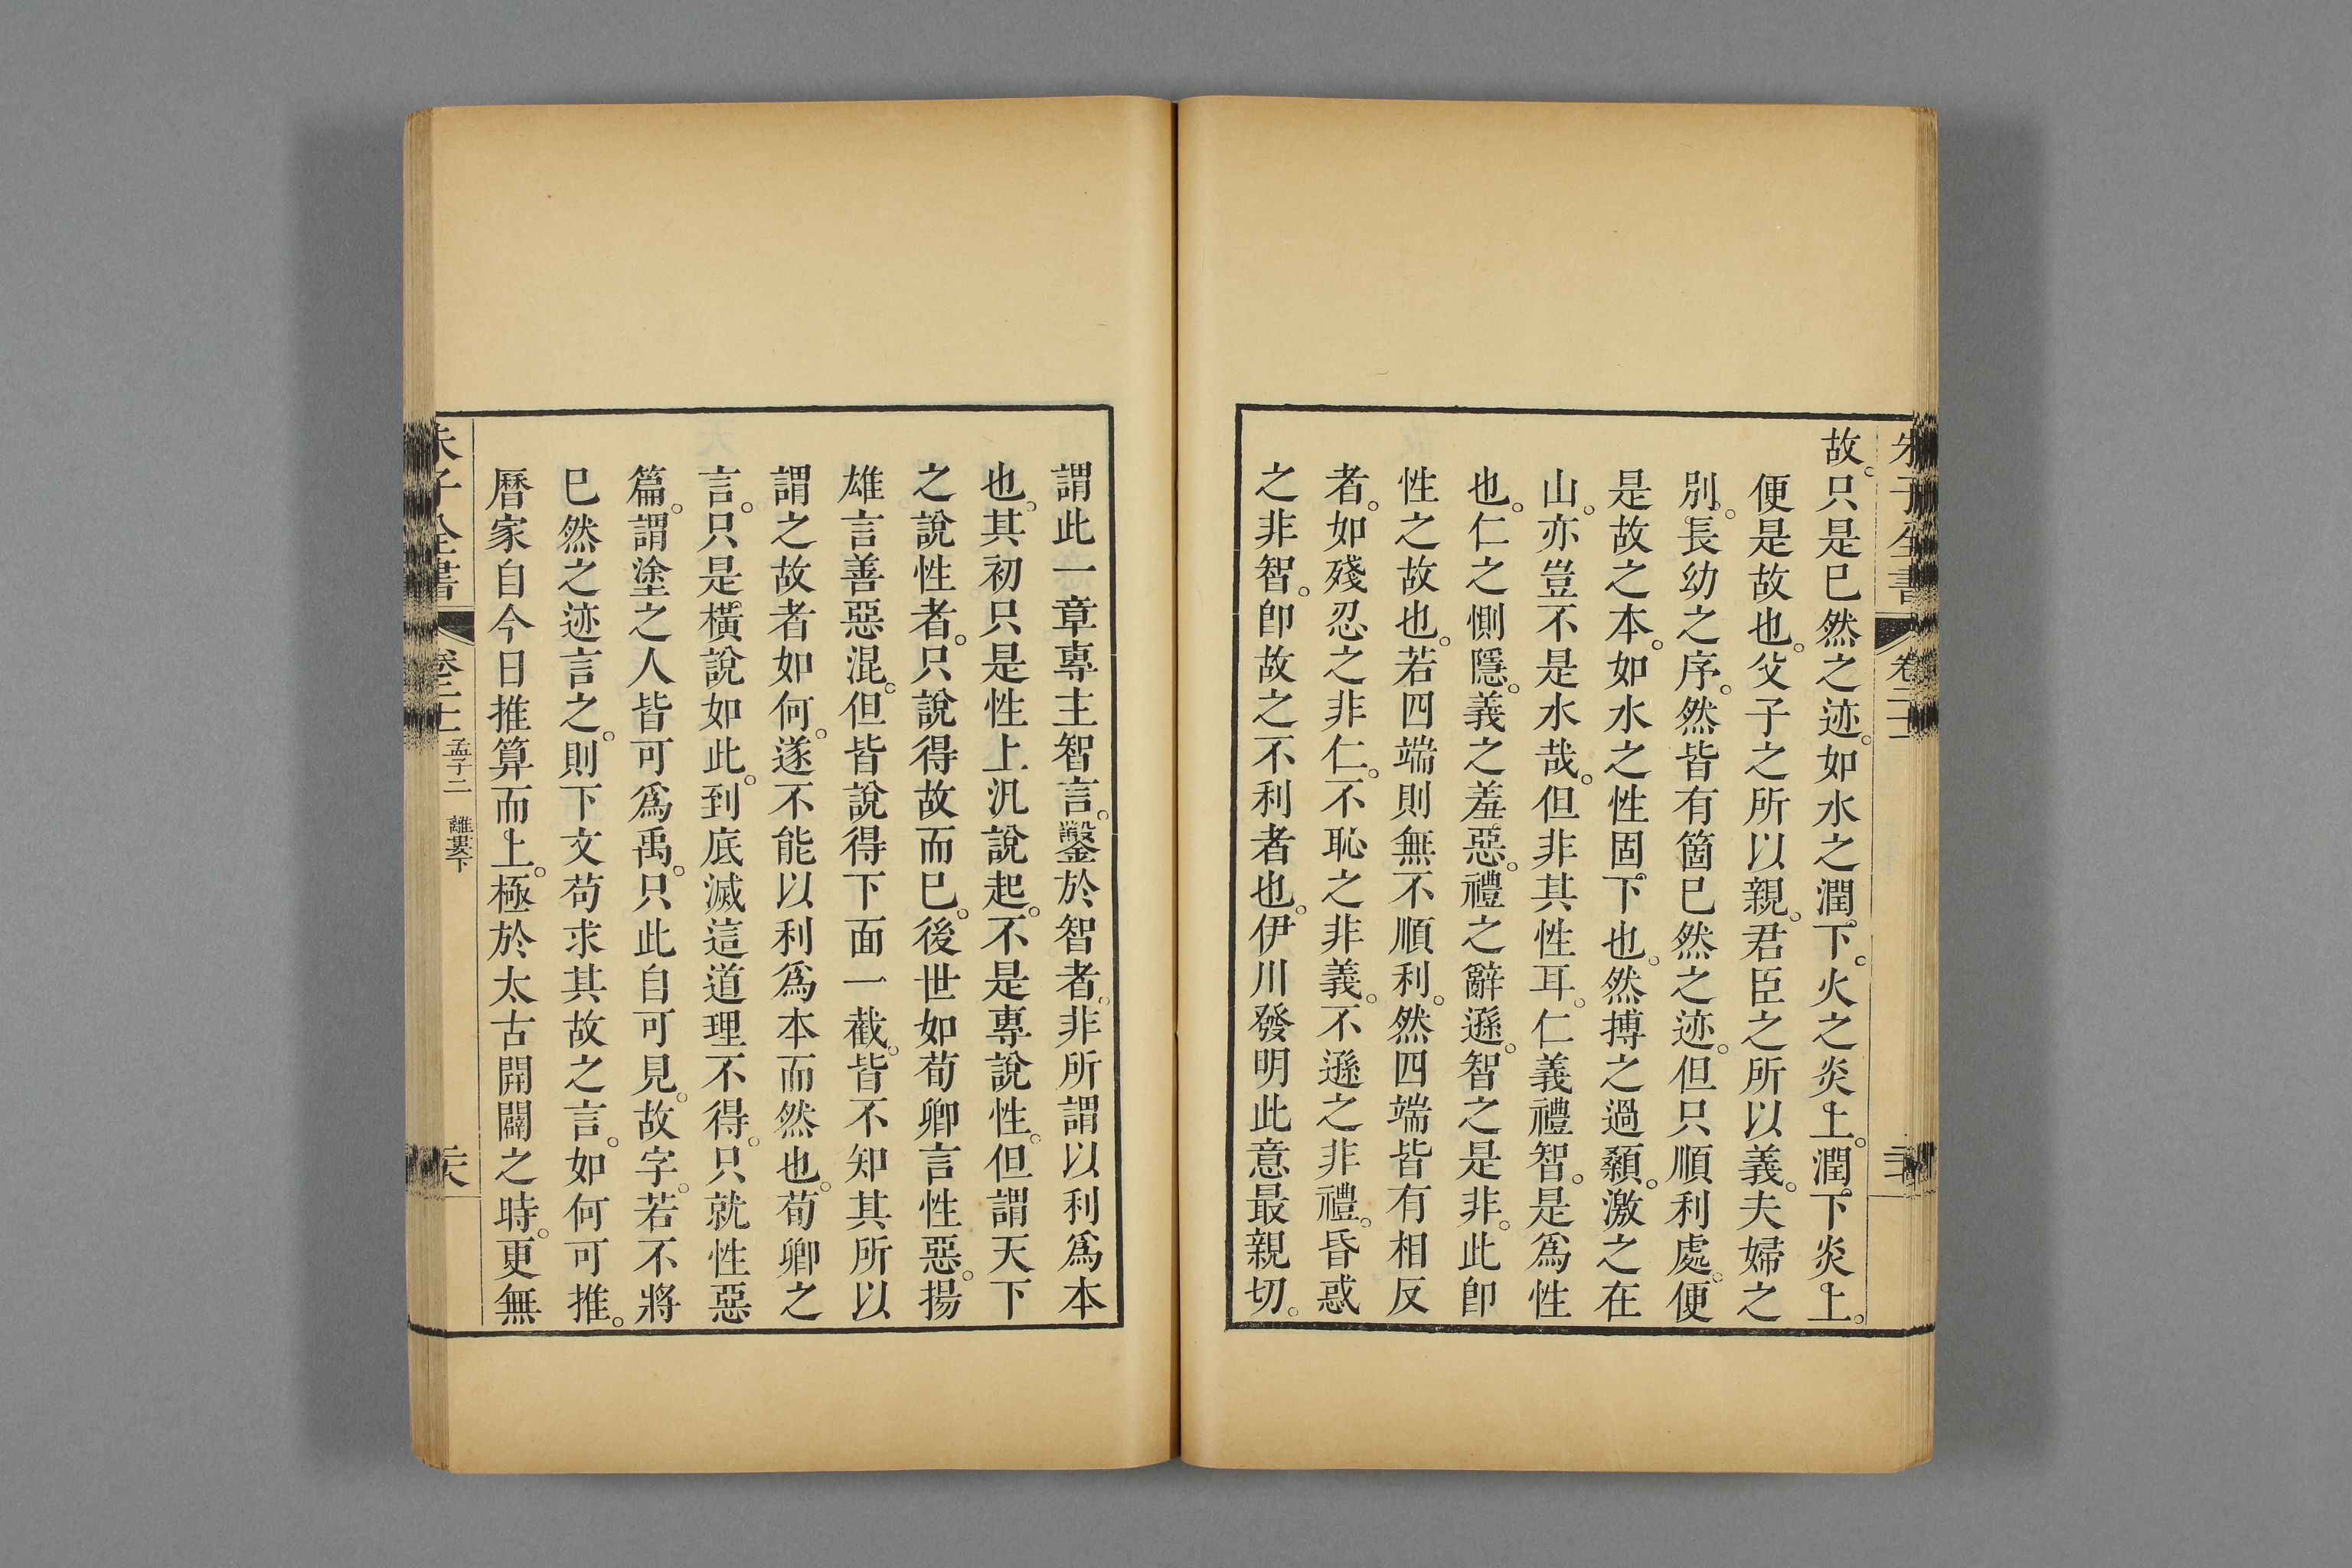 朱子全書 卷二十
故。只是已然之迹。如水之潤下。火之炎上。潤下炎上。
便是故也。父子之所以親。君臣之所以義。夫婦之
別。長幼之序。然皆有箇已然之迹。但只順利處。便
是故之本。如水之性固下也。然搏之過顙。激之在
山。亦豈不是水哉。但非其性耳。仁義禮智。是爲性
也。仁之惻隱。義之羞惡。禮之辭遜。智之是非。此卽
性之故也。若四端則無不順利。然四端皆有相反
者。如殘忍之非仁。不恥之非義。不遜之非禮。昏惑
之非智。卽故之不利者也。伊川發明此意最親切。
謂此一章專主智言。鑿於智者。非所謂以利爲本
也。其初只是性上汎說起。不是專說性。但謂天下
之說性者。只說得故而已。後世如荀卿言性惡。揚
雄言善惡混。但皆說得下面一截。皆不知其所以
謂之故者如何。遂不能以利爲本而然也。荀卿之
言。只是橫說如此。到底滅這道理不得。只就性惡
篇。謂塗之人皆可爲禹。只此自可見。故字。若不將
已然之迹言之。則下文苟求其故之言。如何可推。
曆家自今日推算而上。極於太古開闢之時。更無
朱子全書 卷二十 孟子二 離婁下